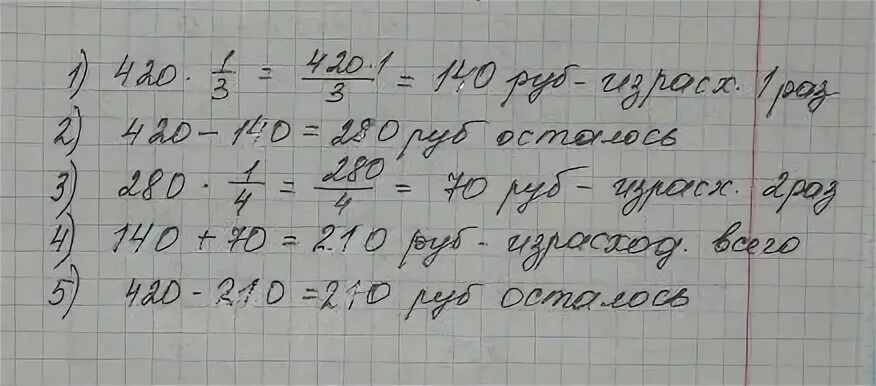 1) 420 · 1/3 = 420·1/3 = 140 руб - израсх. 1 раз
2) 420 - 140 = 280 руб осталось
3) 280 · 1/4 = 280/4 = 70 руб - израсх. 2 раз
4) 140 + 70 = 210 руб - израсход. всего
5) 420 - 210 = 210 руб осталось